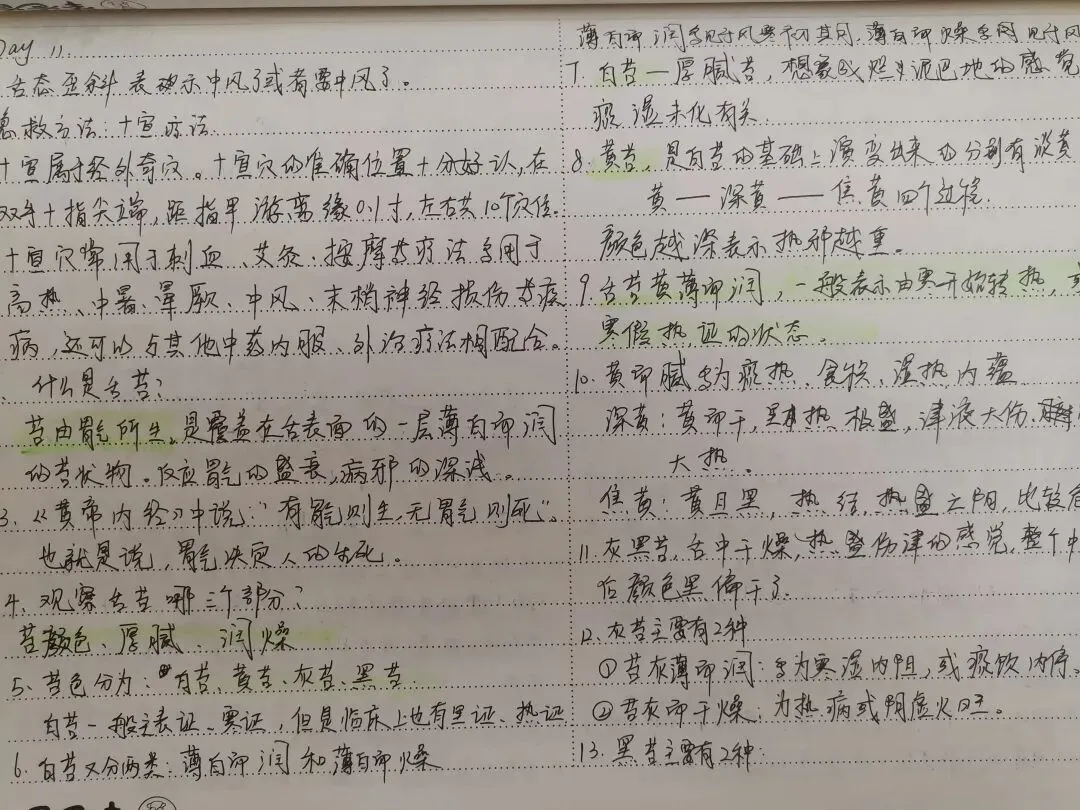 Day 11.
舌态歪斜 表示中风了或者要中风了。
急救方法:十宣疗法
十宣属于经外奇穴。十宣穴的准确位置十分好认,在
双手十指尖端,距指甲游离缘0.1寸,左右共10个穴位。
十宣穴常用于刺血、艾灸、按摩等疗法多用于
高热、中暑、晕厥、中风、末梢神经损伤等疾
病,还可以与其他中药内服、外治疗法相配合。
什么是舌苔?
苔由胃气所生。是覆盖在舌表面的一层薄白而润
的苔状物。反应胃气的盛衰,病邪的深浅。
3.《黄帝内经》中说:"有胃气则生,无胃气则死"。
也就是说,胃气决定人的生死。
4. 观察舌苔哪三个部分?
苔颜色、厚腻、润燥
5. 苔色分为:白苔、黄苔、灰苔、黑苔
白苔一般主表证、寒证,但是临床上也有里证、热证
6. 白苔又分两类:薄白而润和薄白而燥
薄白而润多见于风寒初其间,薄白而燥多见于风
7. 白苔—厚腻苔,想象成烂泥巴地的感觉
痰湿未化有关
8. 黄苔,是白苔的基础上演变出来的分别有淡黄
黄——深黄——焦黄四个过程.
颜色越深表示热邪越重。
9. 舌苔黄薄而润,一般表示由寒开始转热,
寒假热证的状态。
10. 黄而腻多为痰热、食积、湿热内蕴
深黄:黄而干,里热极盛,津液大伤.
大热。
焦黄:黄且黑,热结,热盛之阳,比较
11. 灰黑苔,舌中干燥,热盛伤津的感觉,整个中
后颜色黑偏干了.
12. 灰苔主要有2种
①苔灰薄而润:多为寒湿内阻,或痰饮内停。
②苔灰而干燥:为热病或阴虚火旺。
13. 黑苔主要有2种: